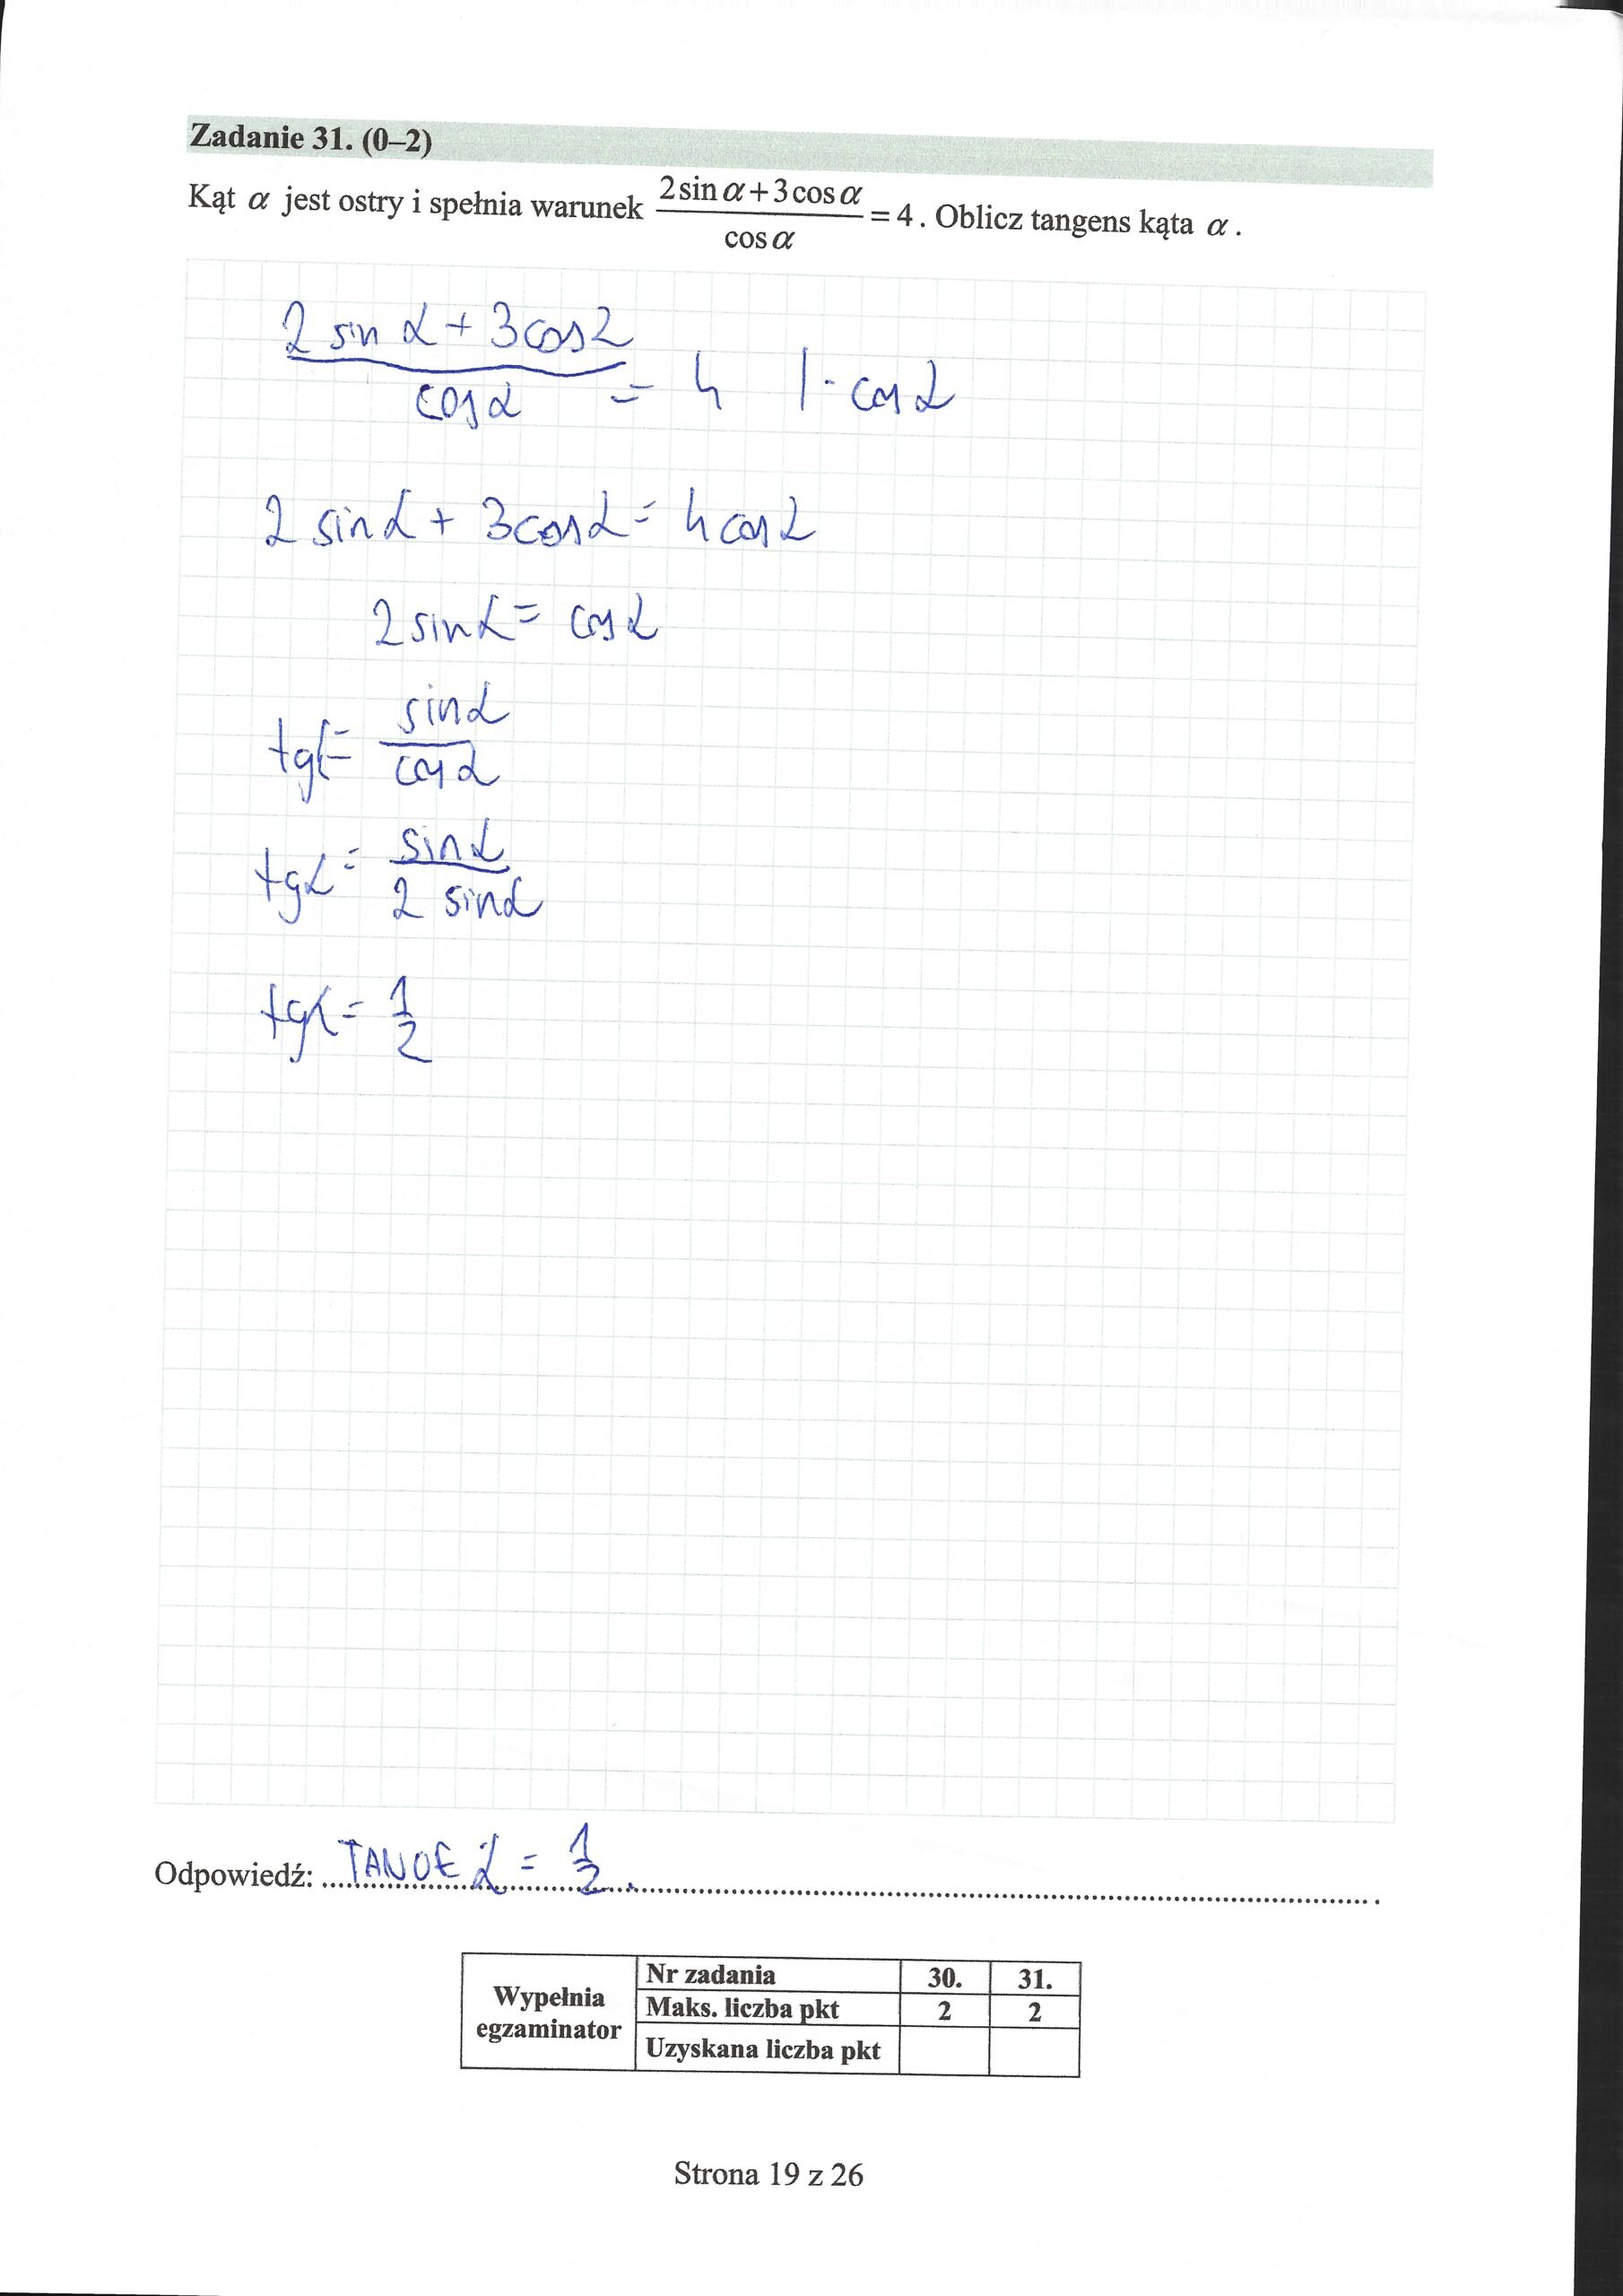 Zadanie 31. (0–2)
Kąt α jest ostry i spełnia warunek (2 sin α + 3 cos α) / cos α = 4 . Oblicz tangens kąta α .
(2 sin α + 3 cos α) / cos α = 4 | · cos α
2 sin α + 3 cos α = 4 cos α
2 sin α = cos α
tg α = sin α / cos α
tg α = sin α / 2 sin α
tg α = 1/2
Odpowiedź: α = 1/2 .
Wypełnia egzaminator
Nr zadania 30. 31.
Maks. liczba pkt 2 2
Uzyskana liczba pkt
Strona 19 z 26